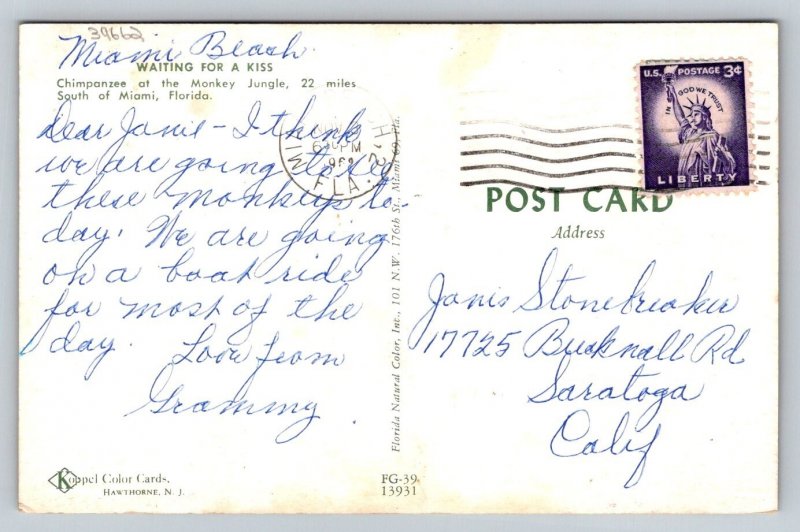 39662
Miami Beach
WAITING FOR A KISS
Chimpanzee at the Monkey Jungle, 22 miles
South of Miami, Florida.
Dear Janis - I think
we are going to see
these monkeys to-
day. We are going
on a boat ride
for most of the
day. Love from
Grammy.
Koppel Color Cards.
HAWTHORNE, N. J.
FLA.
PM
Florida Natural Color, Inc., 101 N.W. 176th St., Miami 69, Fla.
FG-39
13931
U.S. POSTAGE 3¢
IN GOD WE TRUST
LIBERTY
POST CARD
Address
Janis Stonebreaker
17725 Bucknall Rd
Saratoga
Calif